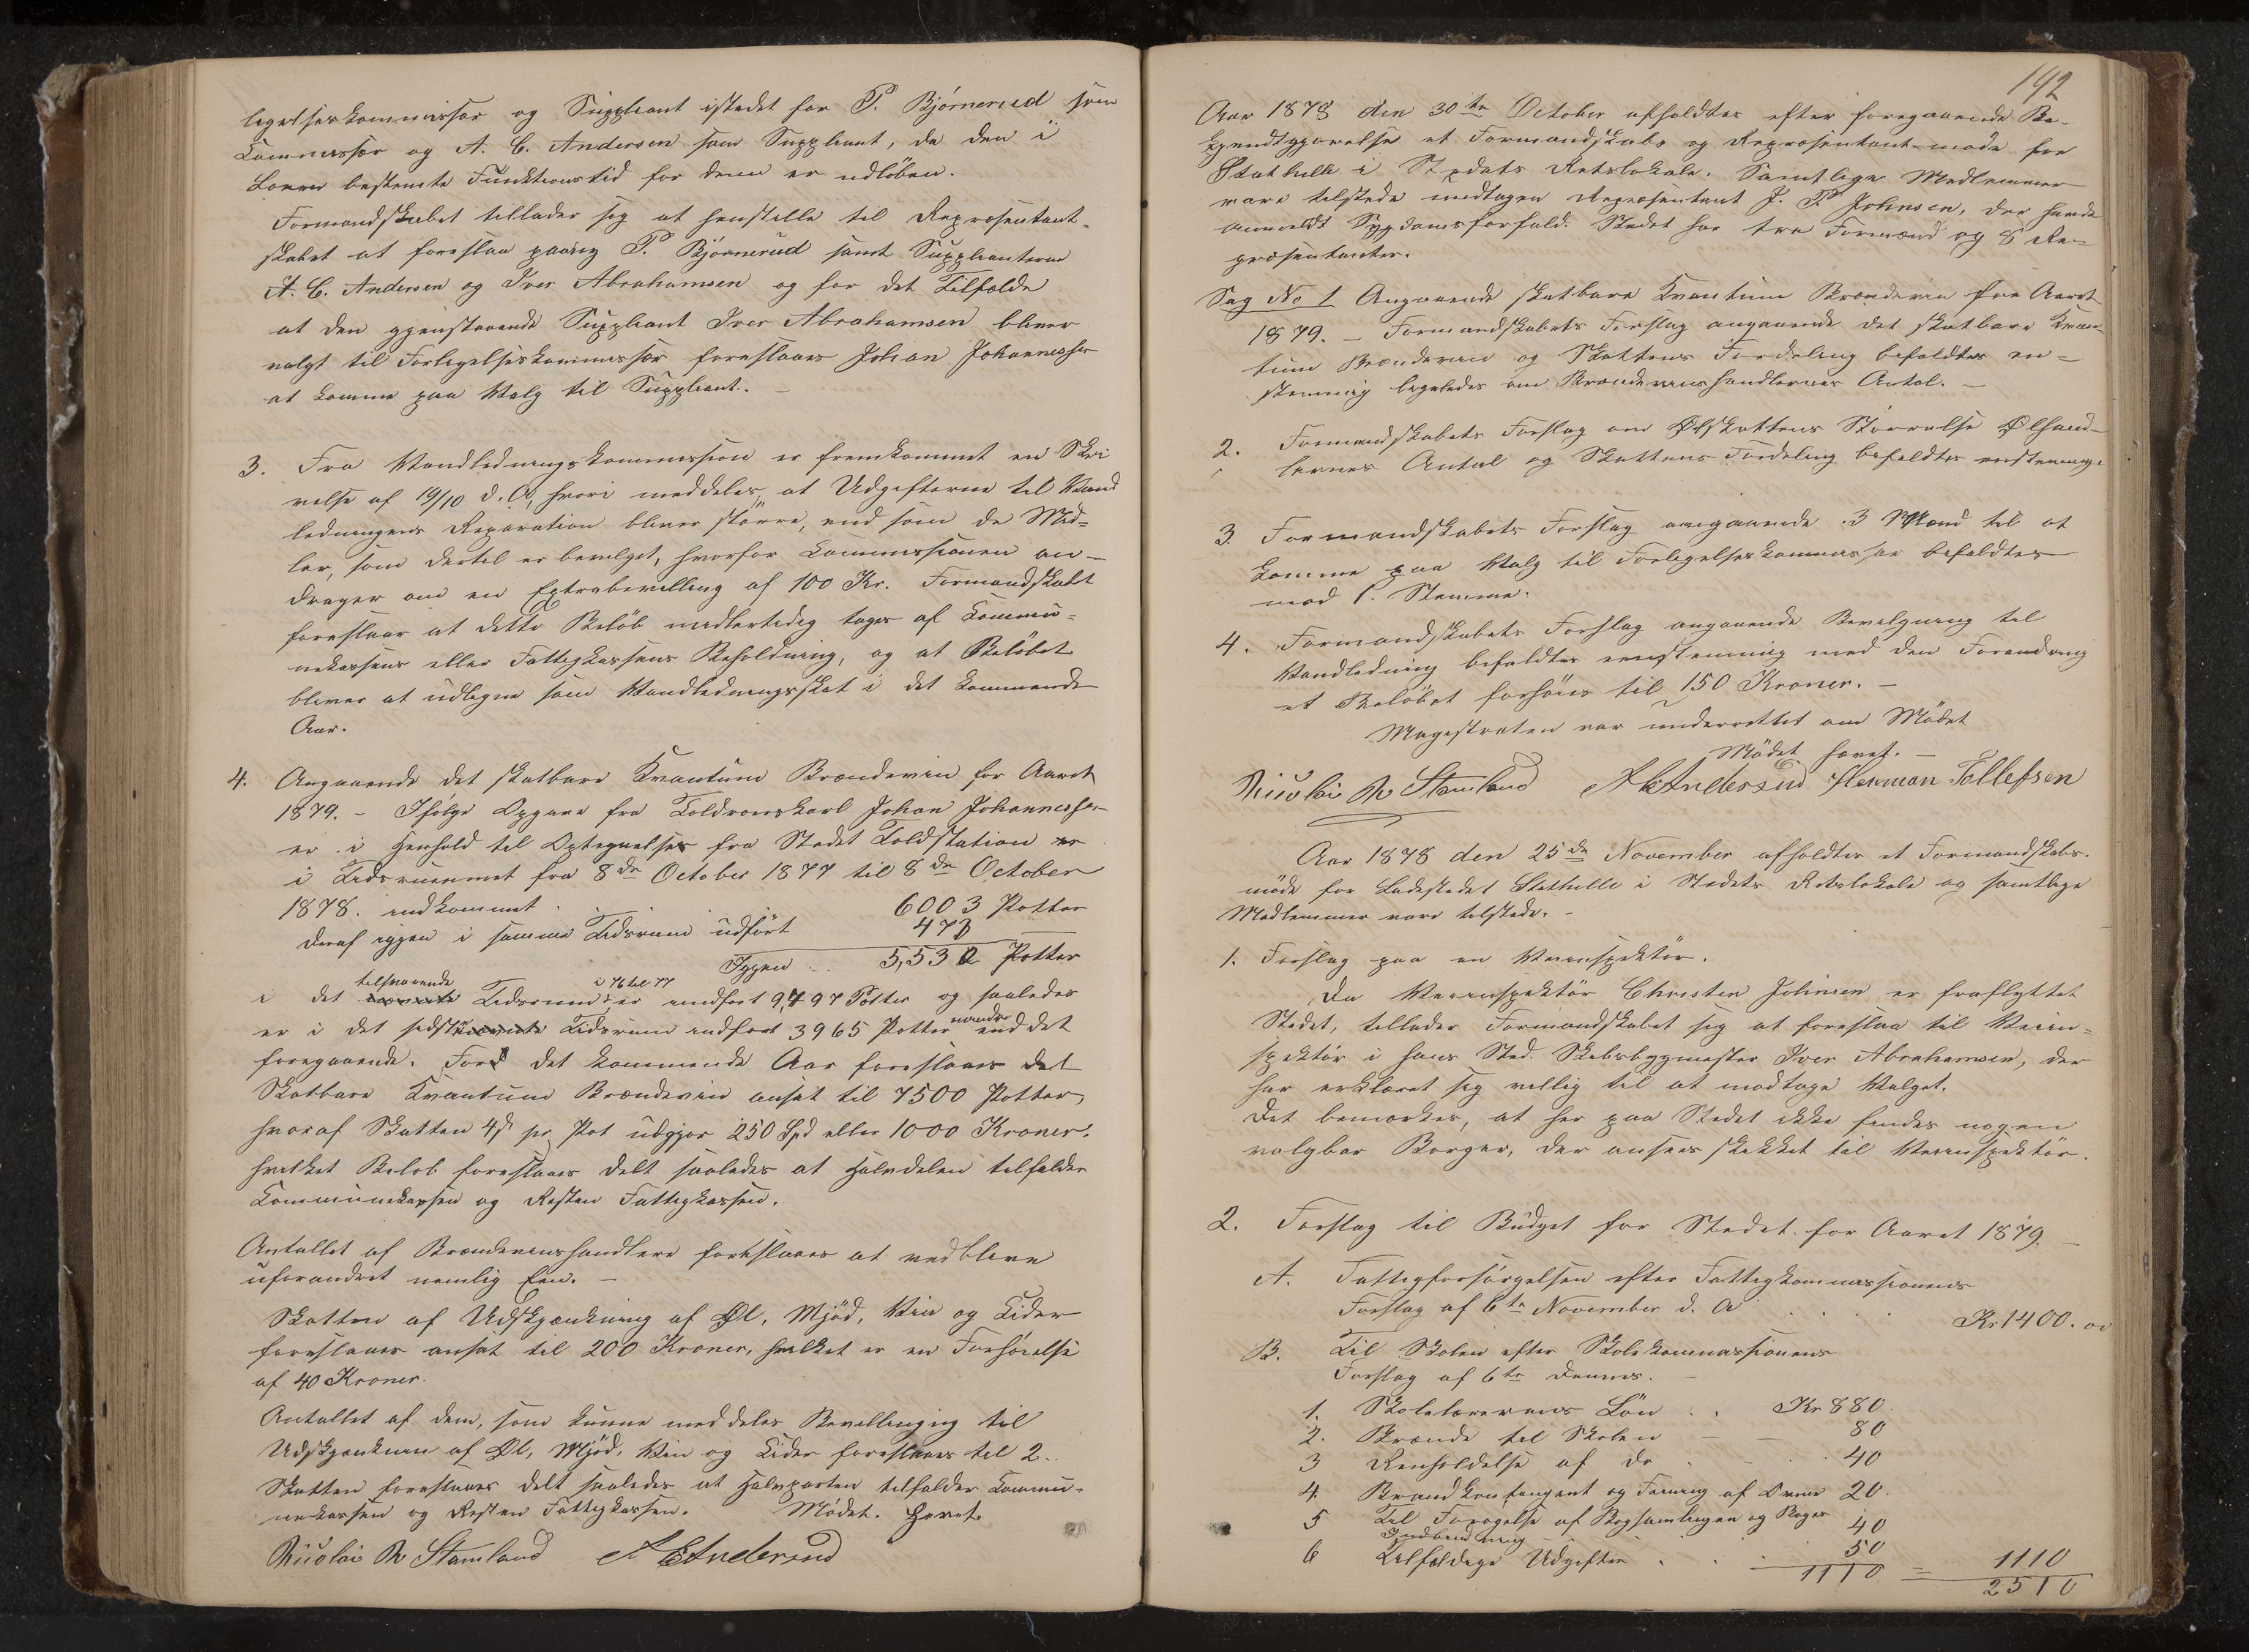 legelseskommissær og Suppleant istedet for P. Bjørnerud som
Kommissær og A. C. Andersen som Suppleant, da den i
Loven bestemte Funktionstid for denne er udløben.
Formandskabet tillader sig at henstille til Repræsentant-
skabet at foreslaa paany P. Bjørnerud samt Suppleanterne
A. C. Andersen og Iver Abrahamsen og for det Tilfælde
at den gjenstaaende Suppleant Iver Abrahamsen bliver
valgt til Forligelseskommissær foreslaaes Johan Johannessen
at komme paa Valg til Suppleant. –
3. Fra Vandledningskommission er fremkommet en Skri
velse af 19/10 d. A, hvori meddeles, at Udgifterne til Vand
ledningens Reparation bliver større, end som de Mid-
ler, som dertil er bevilget, hvorfor Kommissionen an-
drager om en Extrabevilling af 100 Kr. Formandskabet
foreslaar at dette Beløb midlertidig tages af Kommu-
nekassens eller Fattigkassens Beholdning, og at Beløbet
bliver at udligne som Vandledningsskat i det kommende
Aar.
4. Angaaende det skatbare Kvantum Brændevin for Aaret
1879. – Ifølge Opgave fra Toldroerskarl Johan Johannessen
er i Henhold til Optegnelser fra Stedet Toldstation er
i Tidsrummet fra 8de October 1877 til 8de October
1878. indkommet . . . 6003 Potter
deraf igjen i samme Tidsrum udført 473
Igjen . . 5,530 Potter
tilsvarende i 76 til 77
i det Tidsrum er indført 9,497 Potter og saaledes
mindre
er i det sidste Tidsrum indført 3965 Potter end det
foregaaende. For det kommende Aar foreslaaes det
Skatbare Kvantum Brændevin ansat til 7500 Potter,
hvoraf Skatten 4 s pr Pot udgjør 250 Spd eller 1000 Kroner.
hvilket Beløb foreslaaes delt saaledes at Halvdelen tilfalder
Kommunekassen og Resten Fattigkassen.
Antallet af Brændevinshandlere foreslaaes at vedblive
uforandret nemlig Een. –
Skatten af Udskjænkning af Øl, Mjød, Vin og Cider
foreslaaes ansat til 200 Kroner, hvilket er en Forhøielse
af 40 Kroner.
Antallet af dem, som kunne meddeles Bevilling til
Udskjænkning af Øl, Mjød, Vin og Cider foreslaaes til 2.
Skatten foreslaaes delt saaledes at Halvparten tilfalder Kommu-
nekassen og Resten Fattigkassen. Mødet. Hævet
Nicolai Stamland A C Andersen
192
Aar 1878 den 30te October afholdtes efter foregaaende Be-
kjendtgjørelse et Formandskabs og Repræsentant-møde for
Stathelle i Stedets Retslokale. Samtlige Medlemmer
vare tilstede undtagen Repræsentant J. P. Johnsen, der havde
anmeldt Sygdomsforfald. Stedet har tre Formænd og 8 Re-
præsentanter.
Sag No 1 Angaaende skatbare Kvantum Brændevin for Aaret
1879. – Formandskabets Forslag angaaende det skatbare Kvan-
tum Brændevin og Skattens Fordeling bifaldtes en-
stemmig ligeledes om Brændevinshandlernes Antal. –
2. Formandskabets Forslag om Ølskattens Størrelse Ølhand-
lernes Antal og Skattens Fordeling bifaldtes enstemmig.
3. Formandskabets Forslag angaaende 3 Mænd til at
komme paa Valg til Forligelseskommissær bifaldtes
mod 1. Stemme.
4. Formandskabets Forslag angaaende Bevilgning til
Vandledning bifaldtes enstemmig med den Forandring
at Beløbet forhøies til 150 Kroner. –
Magistraten var underrettet om Mødet
Mødet hævet. –
Nicolai Stamland A C Andersen Herman Tollefsen
Aar 1878 den 25de November afholdtes et Formandskabs-
møde for Ladestedet Stathelle i Stedets Retslokale og samtlige
Medlemmer vare tilstede. –
1. Forslag paa en Veiinspektør.
Da Veiinspektør Christen Johnsen er fraflyttet
Stedet, tillader Formandskabet sig at foreslaa til Veiin-
spektør i hans Sted. Skibsbygmester Iver Abrahamsen, der
har erklæret sig villig til at modtage Valget.
Det bemærkes, at her paa Stedet ikke findes nogen
valgbar Borger, der ansees skikket til Veiinspektør.
2. Forslag til Budget for Stedet for Aaret 1879. –
A. Fattigforsørgelsen efter Fattigkommissionens
Forslag af 6te November d. A . . . Kr 1400. 00
B. Til Skolen efter Skolekommissionens
Forslag af 6te dennes. –
1. Skolelærerens Løn . . Kr 880.
2. Brænde til Skolen – – 80
3 Renholdelse af do . . 40
4. Brandkontingent og Feining af Ovne 20.
5 Til Forøgelse af Bogsamlingen og Bøgers
Indbinding 40
6 Tilfældige Udgifter . . . 50
1110 = 1110
2510